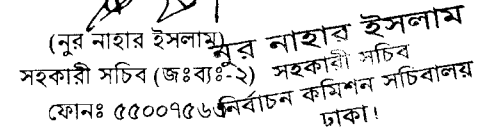 (নুর নাহার ইসলাম)
সহকারী সচিব (জঃবাঃ-২)
ফোনঃ ৫৫০০৭৫৬
নুর নাহার ইসলাম
সহকারী সচিব
নির্বাচন কমিশন সচিবালয়
ঢাকা।